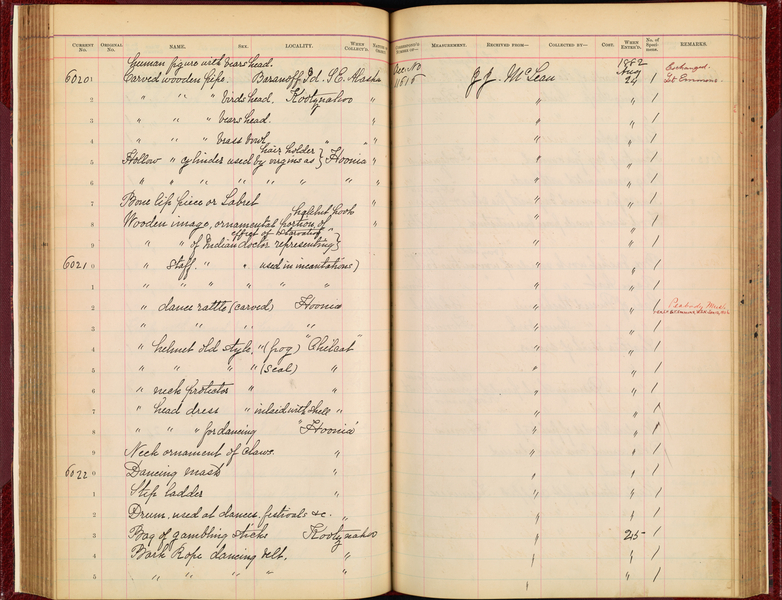 CURRENT No. ORIGINAL No. NAME. SEX. LOCALITY. WHEN COLLECT'D. MEASUREMENT. RECEIVED FROM— COLLECTED BY— COST. WHEN ENTER'D. No. of Speci- mens. REMARKS.
human figure with bears head. Acc. No 1882
60201 Carved wooden pipe. Baranoff Id. S.E. Alaska " 11615 J.J. McLean Aug 24 / Exchanged. Lt. Emmons.
2 " " " birds head. Kootznahoo " " " /
3 " " " bears head. " " " /
4 " " " brass bowl. " " " " /
hair holder
5 Hollow " cylinder used by virgins as } Hoonia " " " /
6 " " " " " " " " " /
7 Bone lip piece or Labret " " " /
halibut hook
8 Wooden image, ornamental portion of " " " /
effect of starvation "
9 " " of Indian doctor representing } " " /
60210 " Staff. " " used in incantations) " " /
1 " " " " " " " /
2 " dance rattle (carved) Hoonia " " / Peabody Mus.
3 " " " " " " /
4 " helmet old style, " (frog) "Chilcat" " " /
5 " " " " (seal) " " " /
6 " neck protector " " " " /
7 " head dress " inlaid with shell " " " /
8 " " " for dancing "Hoonia" " " /
9 Neck ornament of Claws. " " " /
60220 Dancing mask " " " /
1 Step ladder " " " /
2 Drum, used at dances, festivals &c. " " " /
3 Bag of gambling sticks Kootznahoo " 25 /
4 Bark Rope dancing belt. " " " /
5 " " " " " " " /